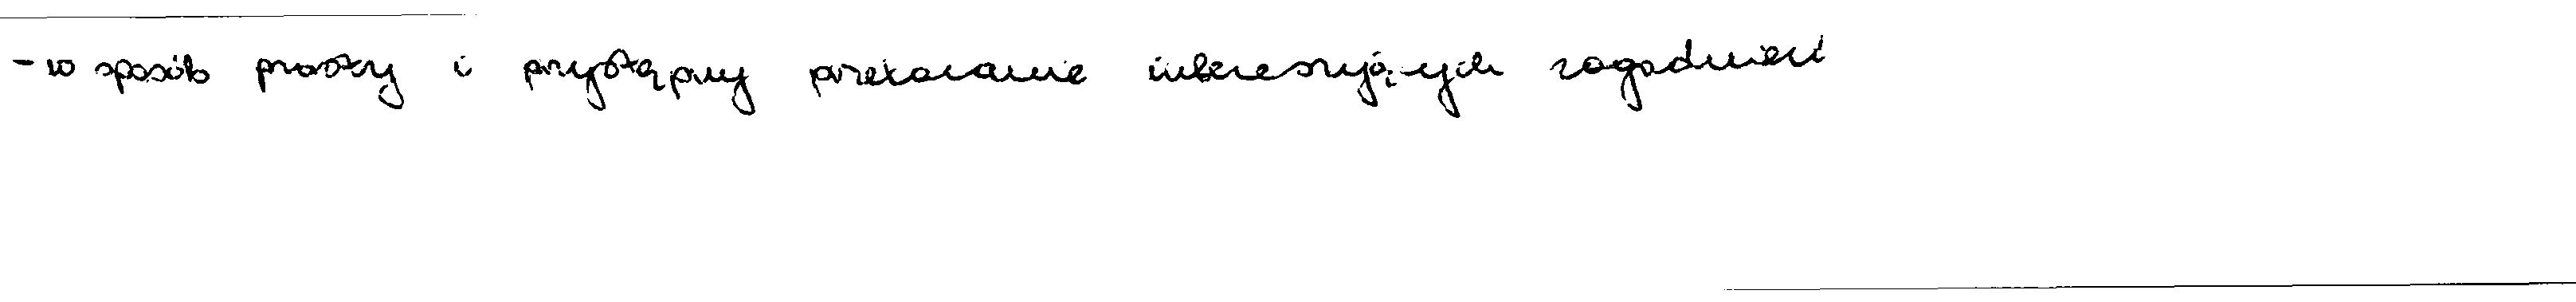 - w sposób prosty i przystępny przekazanie interesujących zagadnień